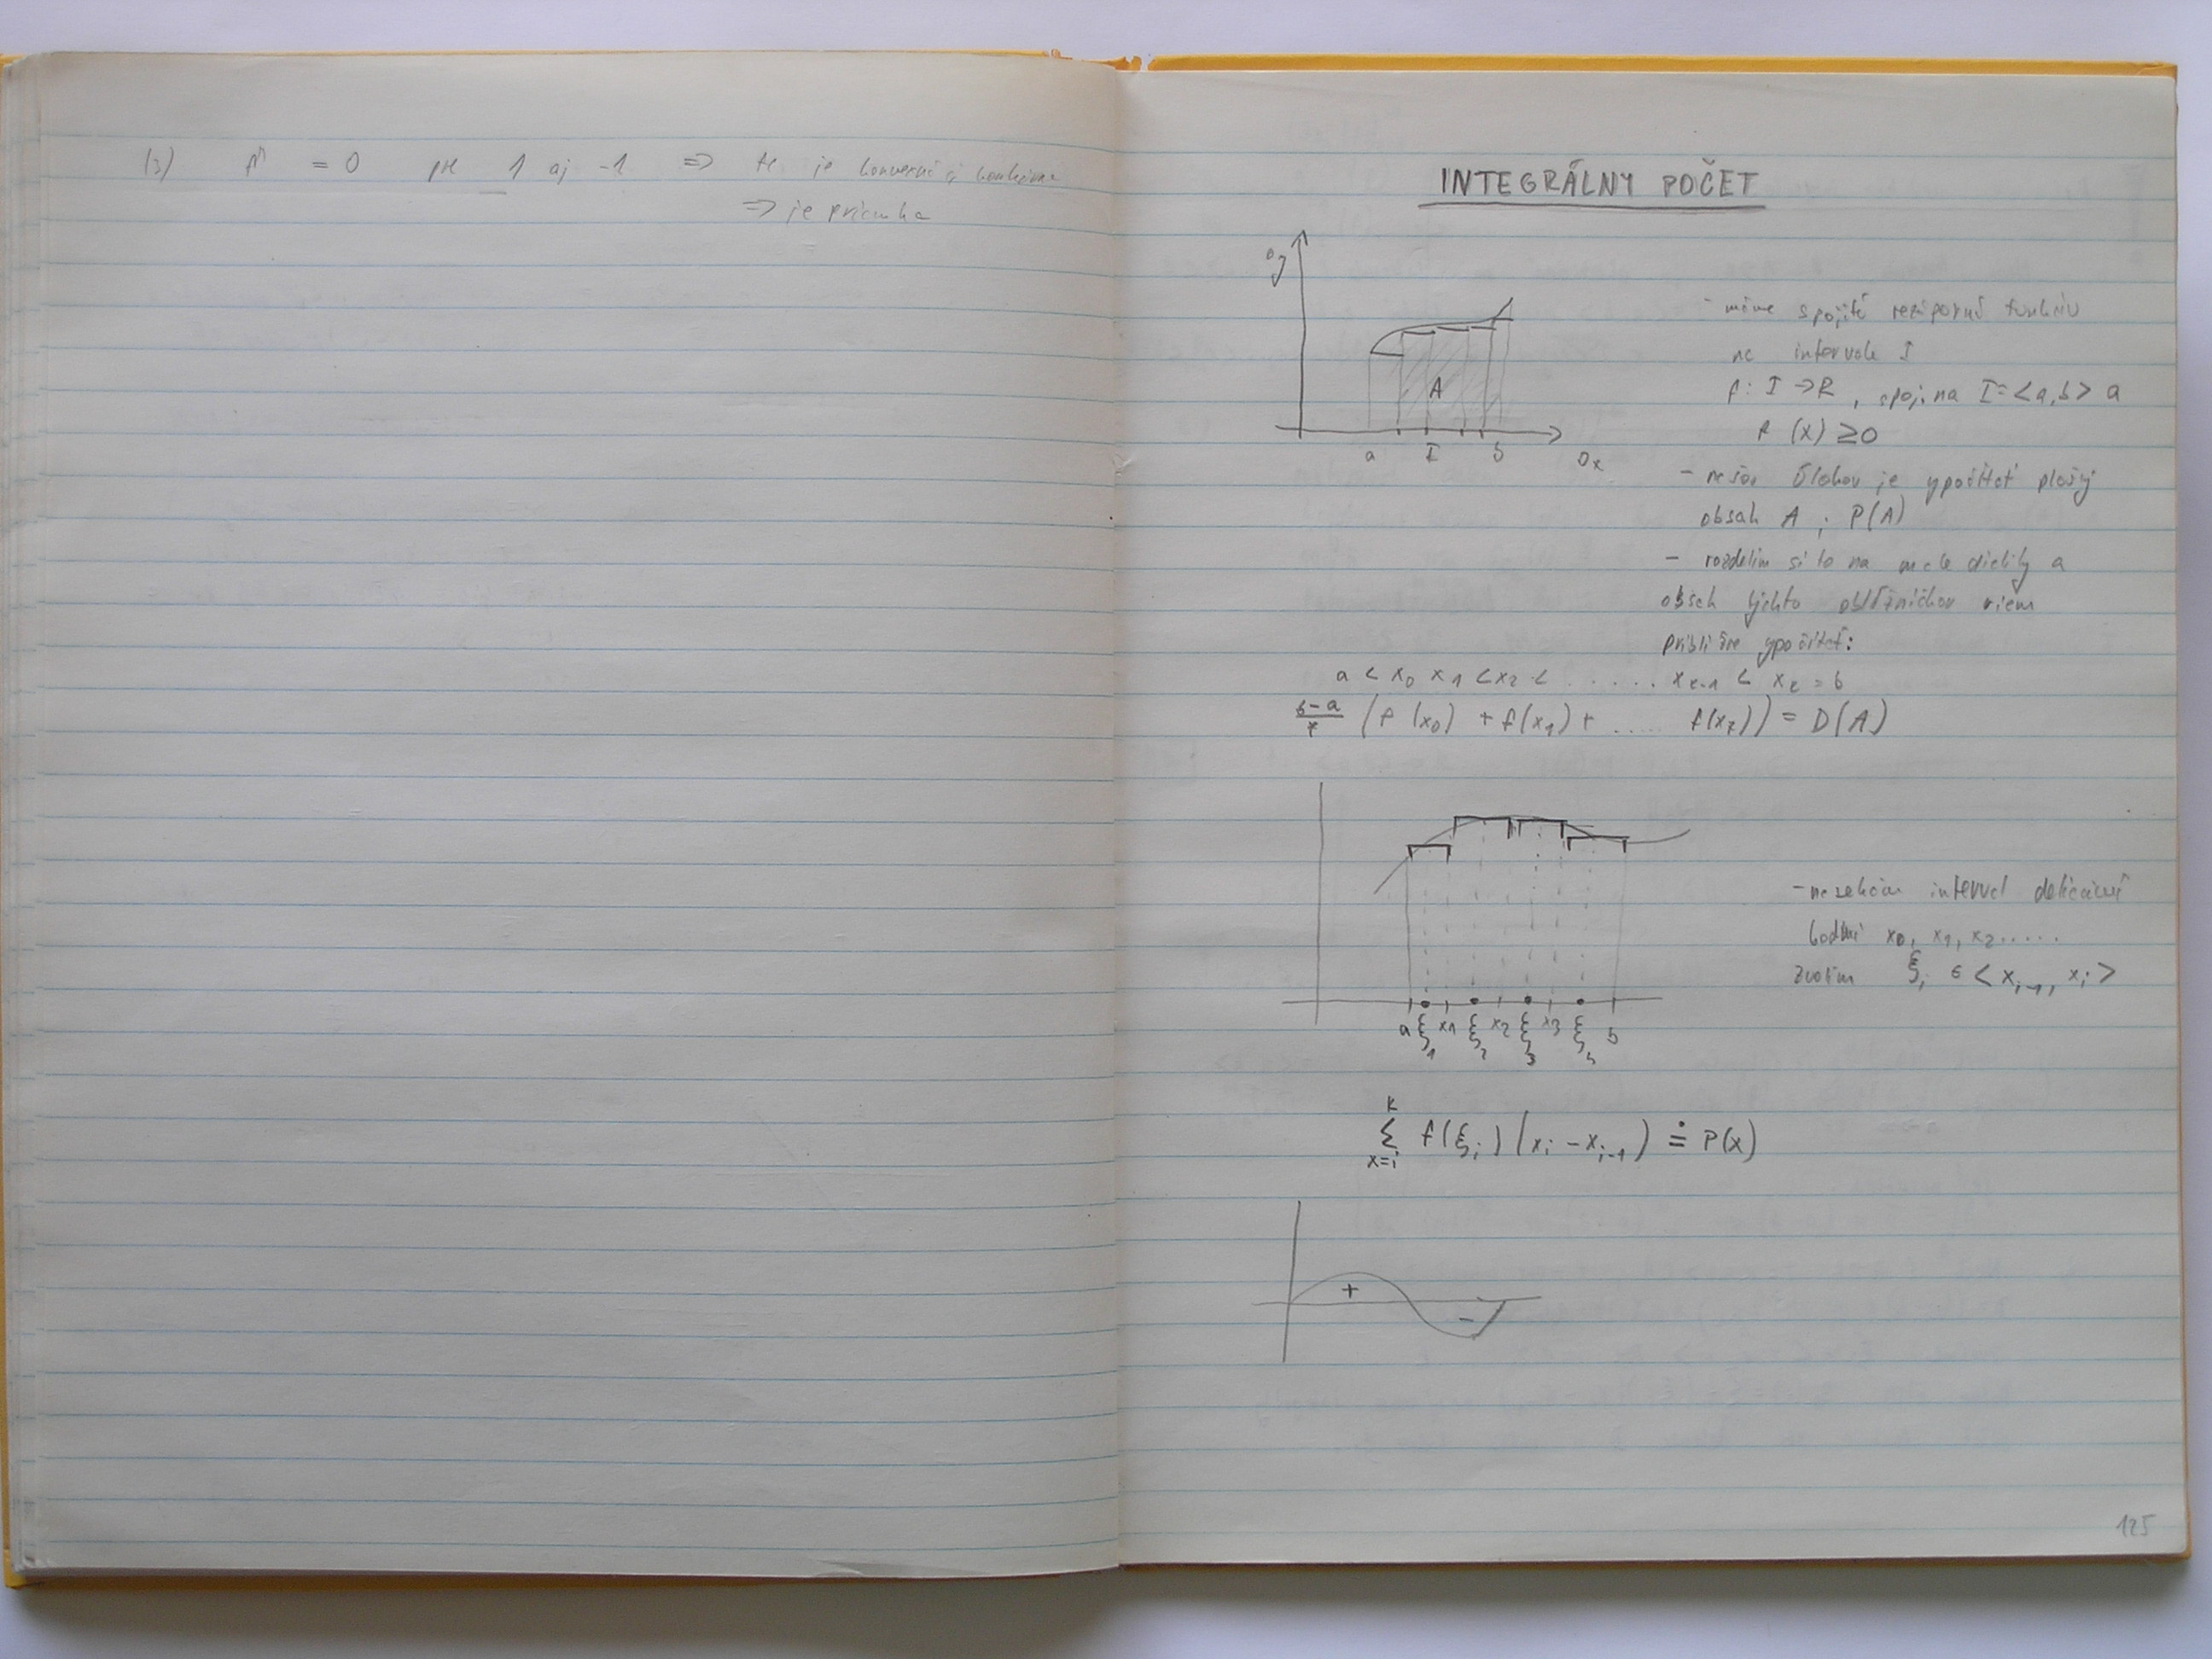 (3) f'' = 0 pre 1 aj -1 => je konvexná aj konkávna
=> je priamka
INTEGRÁLNY POČET
oy
A
a I b ox
- máme spojitú nezápornú funkciu
na intervale I
f: I -> R, spoj. na I = <a,b> a
f (x) ≥ 0
- našou úlohou je vypočítať plošný
obsah A ; P(A)
- rozdelím si to na malé dieliky a
obsah týchto obdĺžničkov viem
približne vypočítať:
a < x0 x1 < x2 < ...... < xk = b
(f (x0) + f(x1) + ..... f(x7)) = D(A)
- nezačiam interval deliacimi
bodmi x0, x1, x2 .....
zvolím ξi ∈ < xi-1, xi >
a ξ1 x1 ξ2 x2 ξ3 x3 ξ4 b
k
Σ f(ξi) (xi - xi-1) ≐ P(x)
x=i
+
-
125